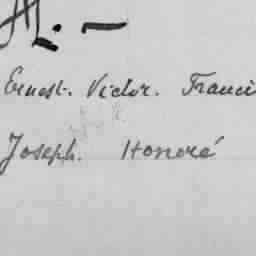 M. —
Ernest. Victor. Franci
Joseph. Honoré